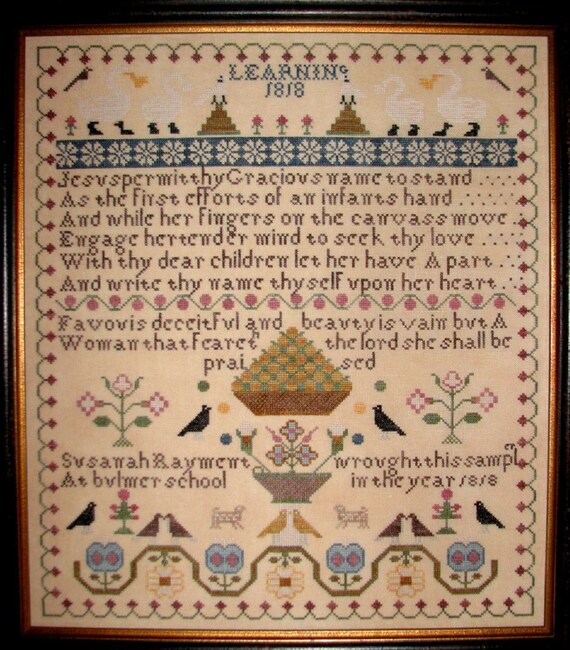 LEARNING
1818
Jesus permit thy Gracious name to stand .....
As the First efforts of an infants hand ......
And while her Fingers on the canvass move ..
Engage her tender mind to seek thy love .....
With thy dear children let her have A part ...
And write thy name thyself vpon her heart ...
Favovis deceitFvl and beavty is vain bvt A
Woman that Fearet the lord she shall be
praised
Svsanah Rayment wrovght this sampl
At bvlmer school in the year 1818